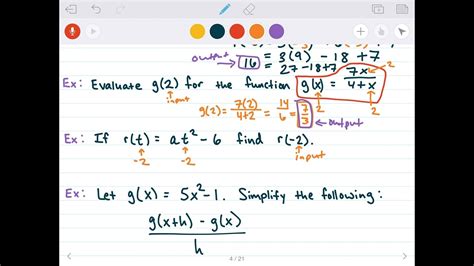 output 16 = 3(9) - 18 + 7
= 27 - 18 + 7
Ex: Evaluate g(2) for the function g(x) = 7x / 4+x
input
2
2
2
g(2) = 7(2) / 4+2 = 14 / 6 = 7 / 3
output
Ex: If r(t) = at² - 6 find r(-2).
-2
-2
input
Ex: Let g(x) = 5x² - 1. Simplify the following:
g(x+h) - g(x)
h
4 / 21